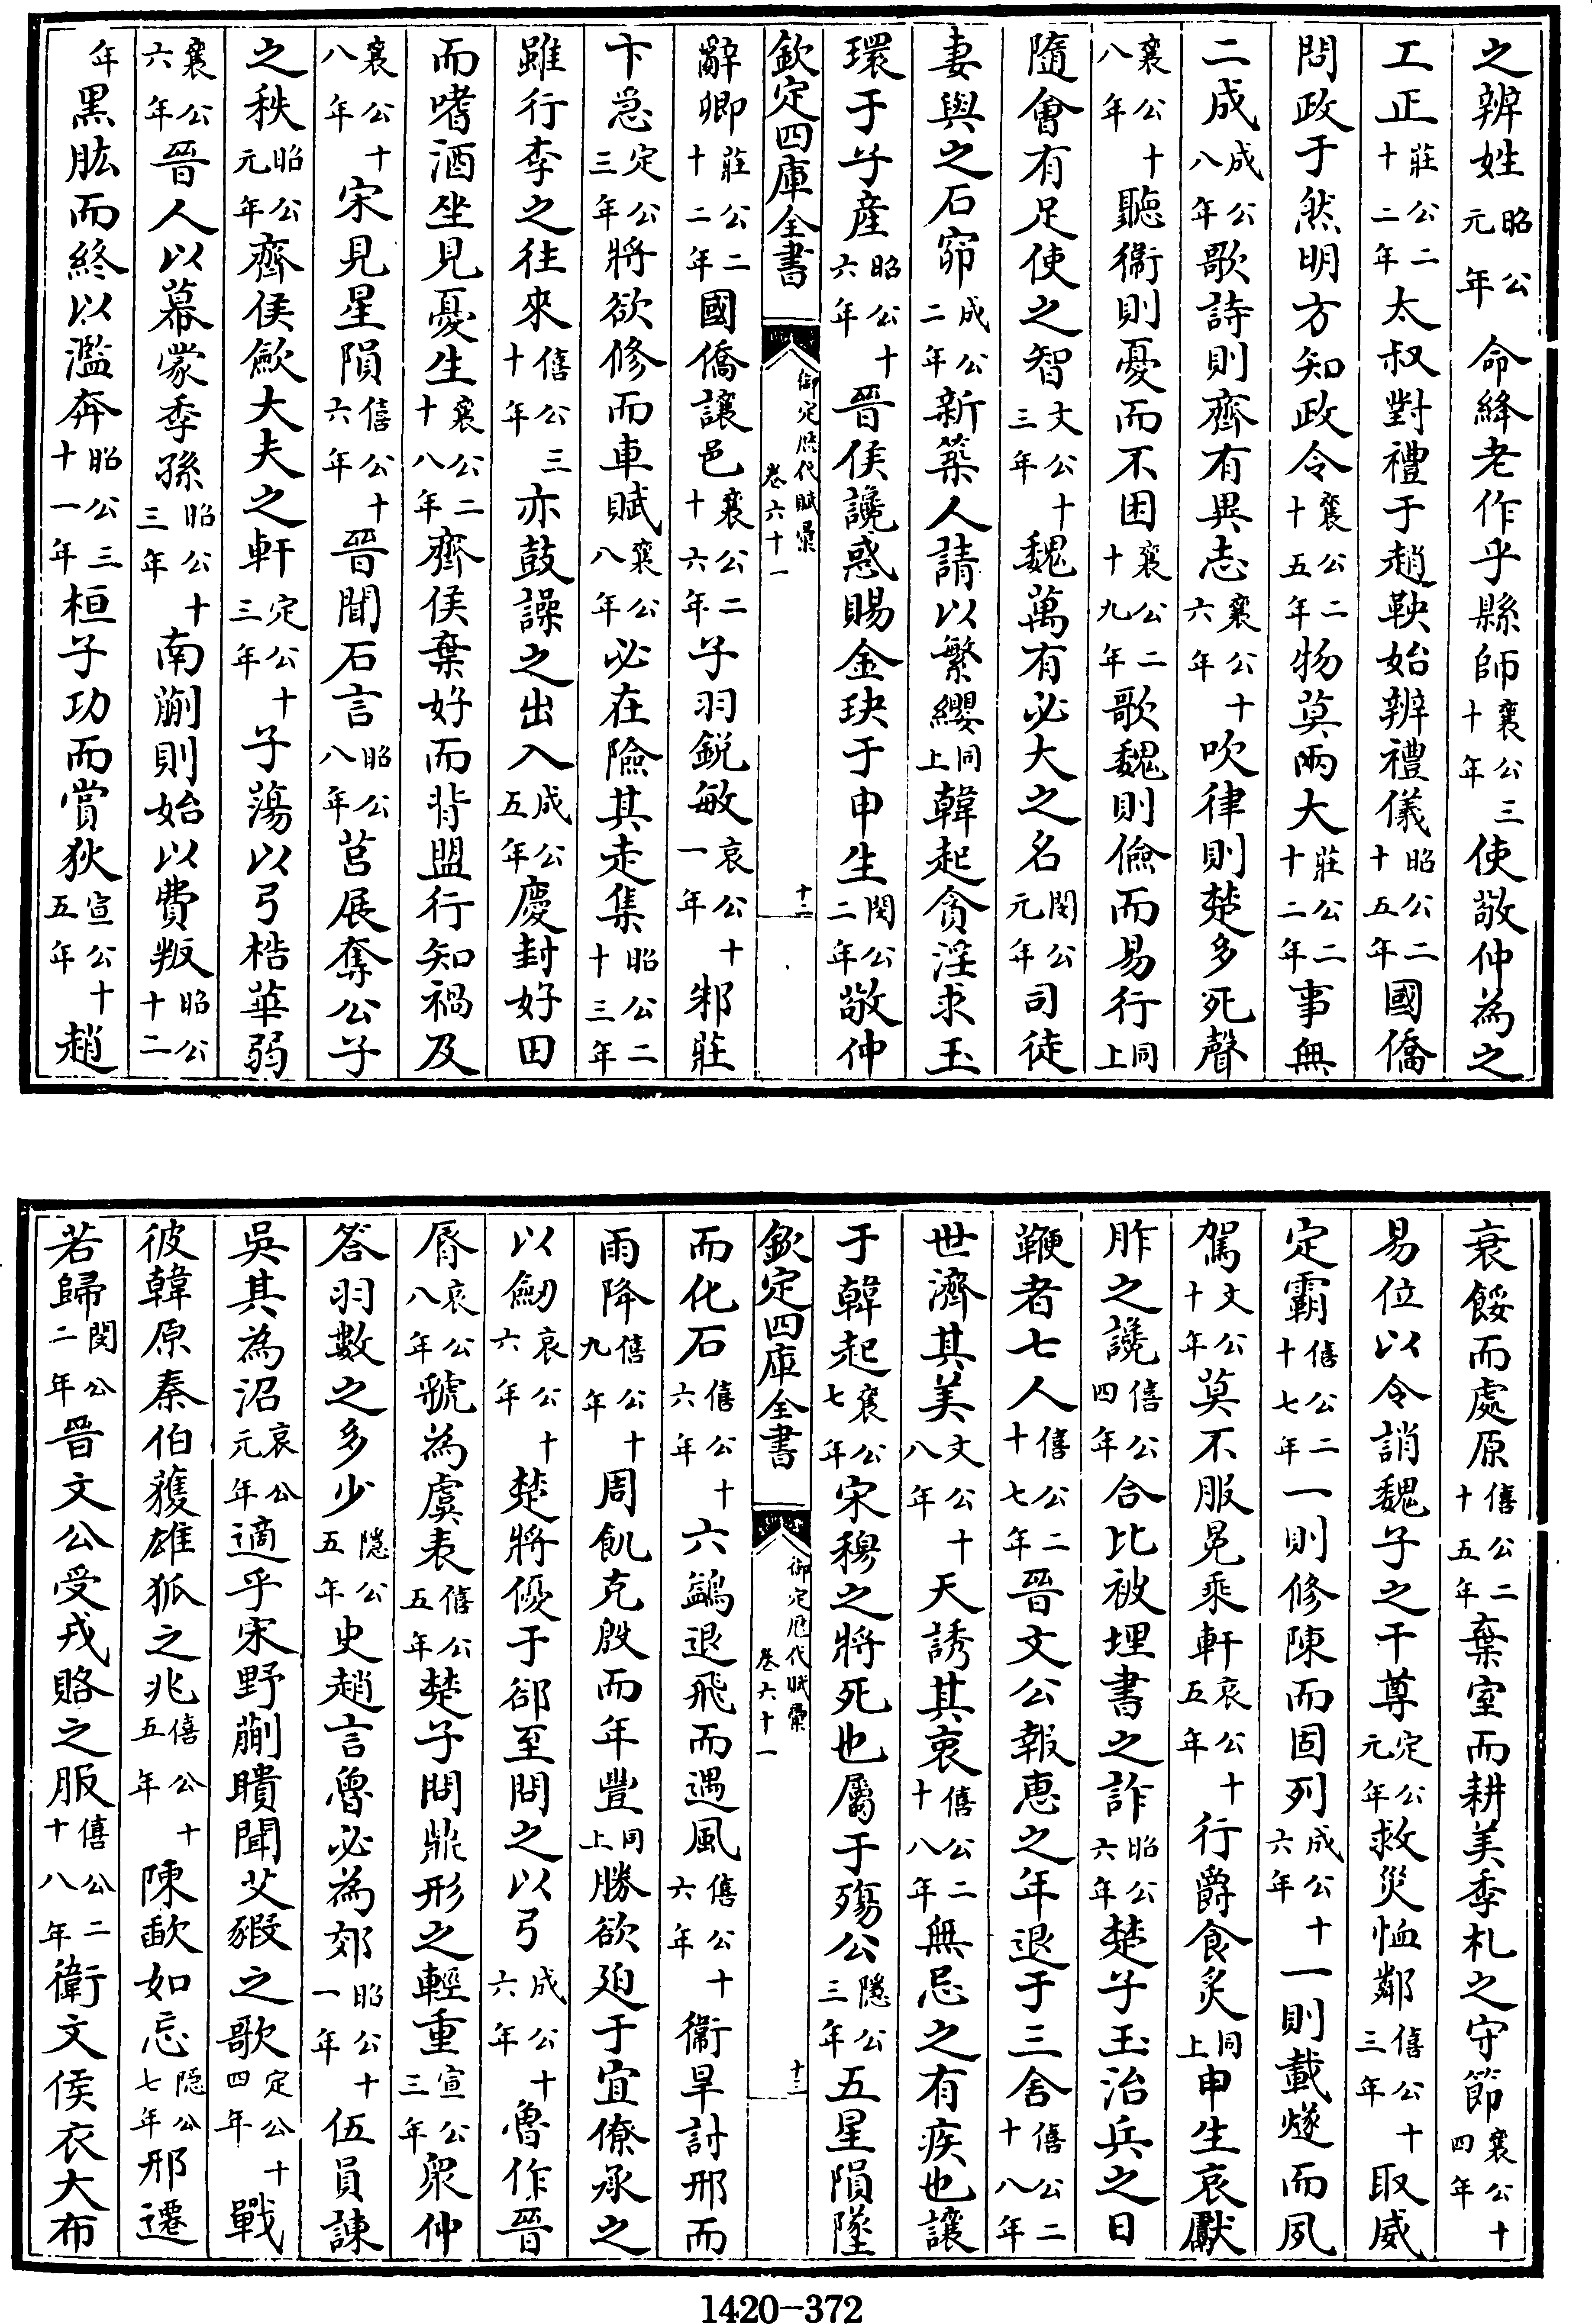 之辨姓昭公元年命絳老作乎縣師襄公三十年使敬仲為之
工正莊公二十二年太叔對禮于趙鞅始辨禮儀昭公二十五年國僑
問政于然明方知政令襄公二十五年物莫兩大莊公二十二年事無
二成成公八年歌詩則齊有異志襄公十六年吹律則楚多死聲
襄公十八年聽衞則憂而不困襄公二十九年歌魏則儉而易行同上
隨會有足使之智文公十三年魏萬有必大之名閔公元年司徒
妻與之石窌成公二年新築人請以繁纓同上韓起貪淫求玉
環于子産昭公十六年晉侯讒惑賜金玦于申生閔公二年敬仲
欽定四庫全書
御定歷代賦彙
卷六十一
十二
辭卿莊公二十二年國僑讓邑襄公二十六年子羽鋭敏哀公十一年邾莊
卞急定公三年將欲修而車賦襄公八年必在險其走集昭公二十三年
雖行李之往來僖公三十年亦鼓譟之出入成公五年慶封好田
而嗜酒坐見憂生襄公二十八年齊侯棄好而背盟行知禍及
襄公十八年宋見星隕僖公十六年晉聞石言昭公八年莒展奪公子
之秩昭公元年齊侯歛大夫之軒定公十三年子蕩以弓梏華弱
襄公六年晉人以幕蒙季孫昭公十三年南蒯則始以費叛昭公十二
年黑肱而終以濫奔昭公三十一年桓子功而賞狄宣公十五年趙
衰餒而處原僖公二十五年棄室而耕美季札之守節襄公十四年
易位以令誚魏子之干尊定公元年救災恤鄰僖公十三年取威
定霸僖公二十七年一則修陳而固列成公十六年一則載燧而夙
駕文公十年莫不服冕乘軒哀公十五年行爵食炙同上申生哀獻
胙之讒僖公四年合比被埋書之詐昭公六年楚子玉治兵之日
鞭者七人僖公二十七年晉文公報惠之年退于三舍僖公二十八年
世濟其美文公十八年天誘其衷僖公二十八年無忌之有疾也讓
于韓起襄公七年宋穆之將死也屬于殤公隱公三年五星隕墜
欽定四庫全書
御定歷代賦彙
卷六十一
十三
而化石僖公十六年六鷁退飛而遇風僖公十六年衞旱討邢而
雨降僖公十九年周飢克殷而年豐同上勝欲廹于宜僚承之
以劒哀公十六年楚將優于郤至問之以弓成公十六年魯作晉
脣哀公八年虢為虞表僖公五年楚子問鼎形之輕重宣公三年衆仲
答羽數之多少隱公五年史趙言魯必為郊昭公十一年伍員諫
吳其為沼哀公元年適乎宋野蒯聵聞艾豭之歌定公十四年戰
彼韓原秦伯獲雄狐之兆僖公十五年陳歃如忘隱公七年邢遷
若歸閔公二年晉文公受戎賂之服僖公二十八年衛文侯衣大布
1420-372